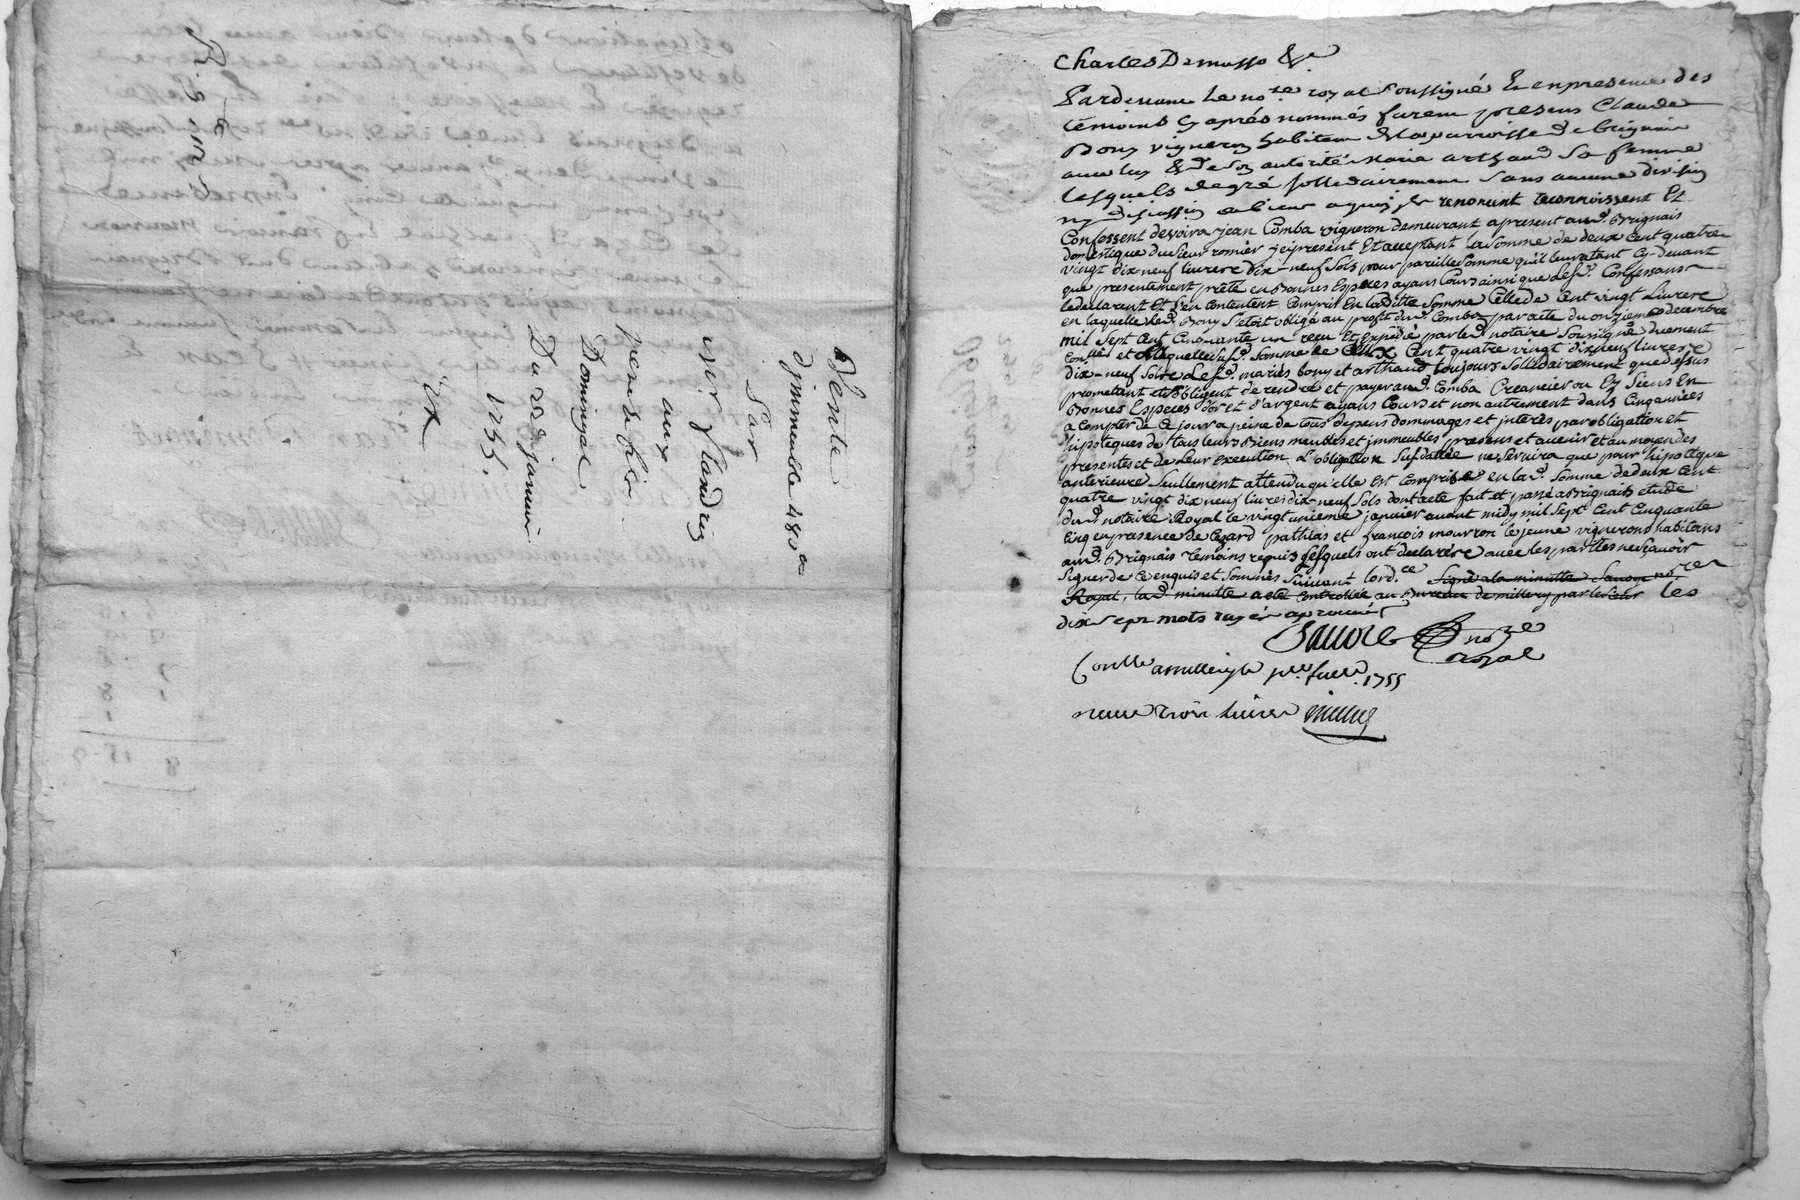 Vente
d'jmmeuble 480 #
Par
Sir flandrin
aux
mere & fils
Domingeal
Du 22 janvier
1755.
Charles Demasso &c
Pardevant le no.re royal soussigné Et en presence des
temoins cy aprés nommés furent presens Claude
Bony vigneron habitant de la parroisse de brignais
avec luy & de son autorité Marie arthaud sa femme
lesquels de gré sollidairement sans aucune division
ny discussion de biens a quoy ils renoncent reconnoissent Et
Confessent devoir a jean Comba vigneron demeurant apresent aud. Brignais
domestique du sieur romier jci present Et acceptant la somme de deux Cent quatre
vingt dix neuf livres dix-neuf sols pour pareille somme qu'il leur a tant Cy-devant
que presentement prêté en Bonnes Especes ayans Cours ainsi que lesd. Confessans
le declarent Et s'en Contentent Compris En laditte somme Celle de Cent vingt Livres
en laquelle led. Bony s'etoit obligé au profit dud. Comba par acte du onzieme decembre
mil sept Cent Cinquante un reçu Et Expedié par led. notaire soussigné duement
Con.llé et laquelle susd. somme de deux Cent quatre vingt dix neuf livres
dix-neuf sols Lesd. mariés bony et arthaud toujours sollidairement que dessus
promettent et s'obligent de rendre et payer aud. Comba Creancier ou Es siens En
Bonnes Especes d'or et d'argent ayans Cours et non autrement dans Cinq années
a Compter de Ce jour a peine de tous depens dommages et interes par obligation et
hipoteques de tous leurs Biens meubles et jmmeubles presens et avenir et au moyen des
presentes et de leur execution L'obligation susdattée ne servira que pour hipoteque
anterieure seullement attendu qu'elle est Comprise en lad. somme de deux Cent
quatre vingt dix neuf livres dix-neuf sols dont acte fait et passé a Brignais etude
dud. notaire Royal le vingt unieme janvier avant midy mil sept Cent Cinquante
Cinq en presence de Cezard pathias et francois mourron le jeune vignerons habitans
aud. Brignais temoins requis lesquels ont declarés avec les parties ne sçavoir
signer de Ce enquis et sommés suivant lord.ce signé a la minutte Sauoie no.re
Royal, lad. minutte a eté Controllée au Bureau de millery par les
dix sept mots rayés aprouvés
Sauoie no.re
royal
Con.llé a millery le p.er fuer. 1755
receu trois livres